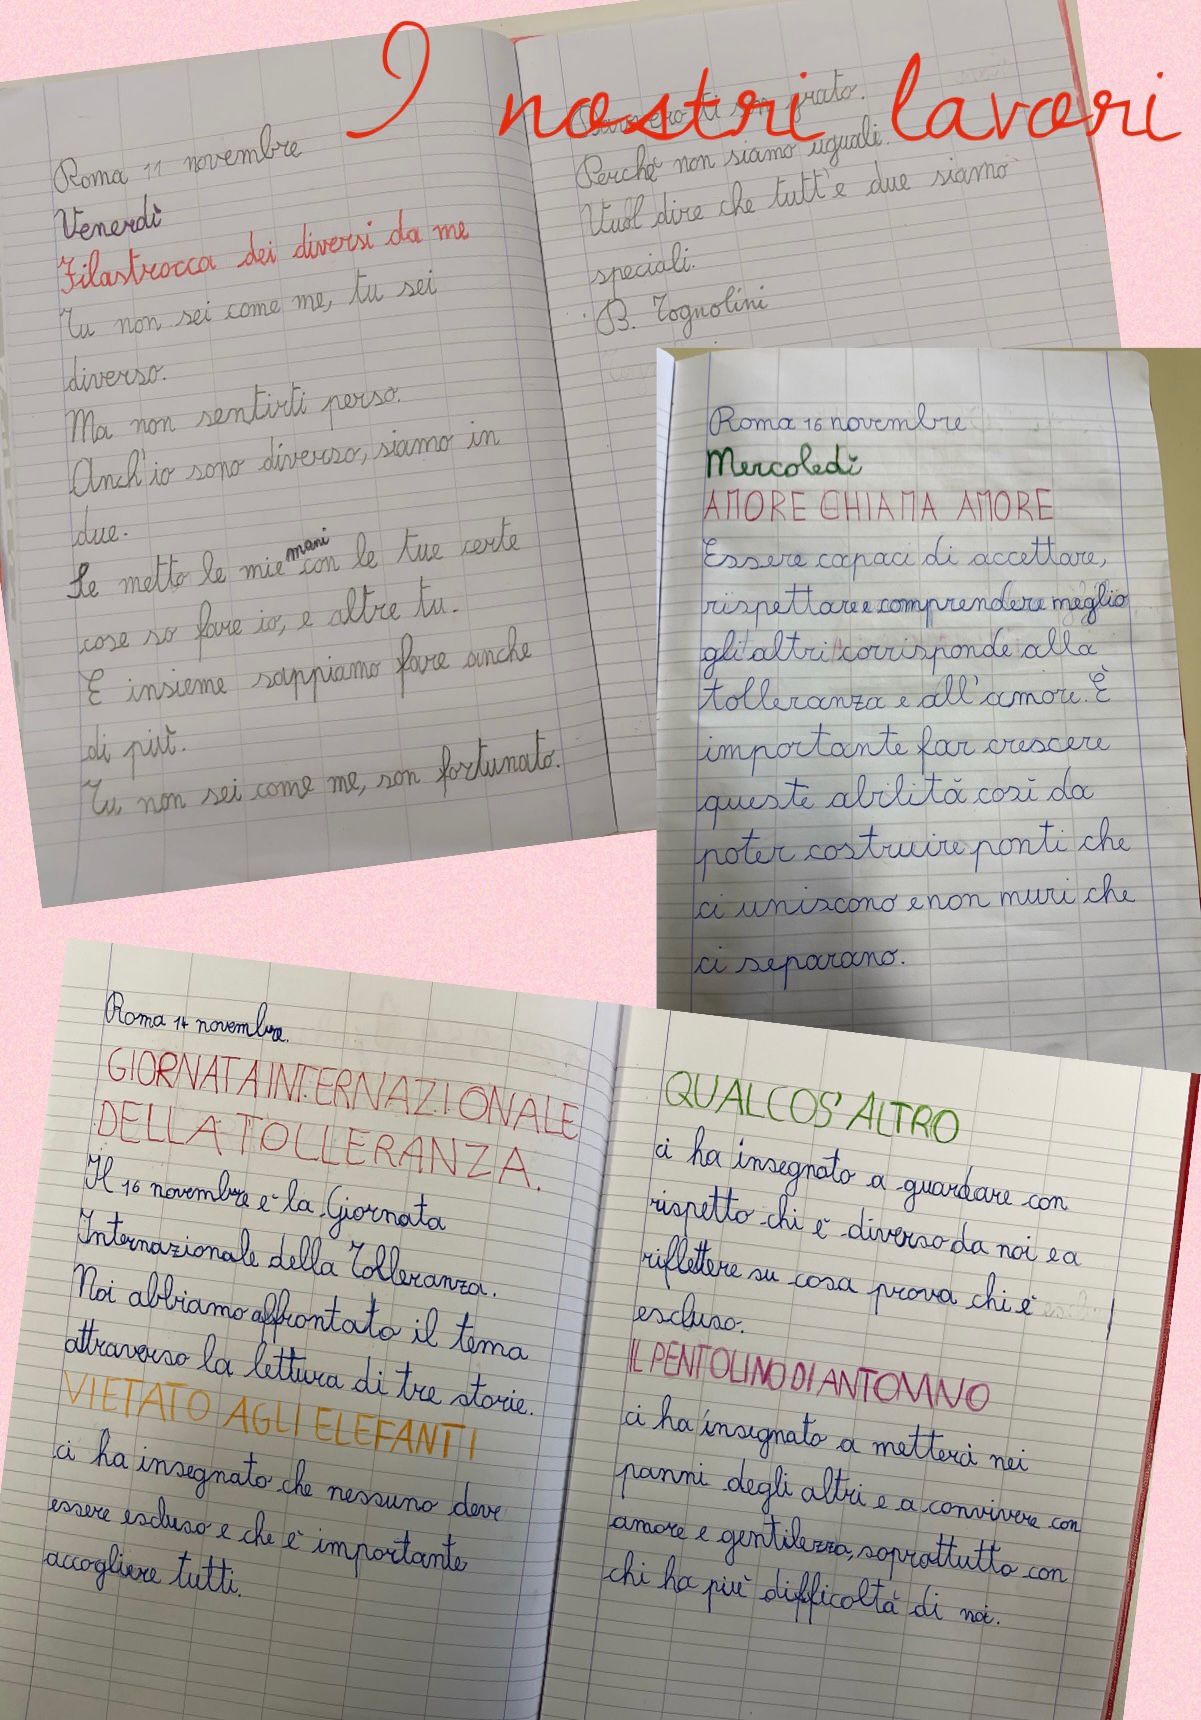 I nostri lavori
Roma 11 novembre
Venerdì
Filastrocca dei diversi da me
Tu non sei come me, tu sei
diverso.
Ma non sentirti perso.
Anch'io sono diverso, siamo in
due.
Se metto le mie mani con le tue certe
cose so fare io, e altre tu.
E insieme sappiamo fare anche
di più.
Tu non sei come me, son fortunato.
ti son grato.
Perché non siamo uguali.
Vuol dire che tutt'e due siamo
speciali.
B. Tognolini
Roma 16 novembre
Mercoledì
AMORE CHIAMA AMORE
Essere capaci di accettare,
rispettare e comprendere meglio
gli altri corrisponde alla
tolleranza e all'amore. È
importante far crescere
queste abilità così da
poter costruire ponti che
ci uniscono e non muri che
ci separano.
Roma 14 novembre.
GIORNATA INTERNAZIONALE
DELLA TOLLERANZA.
Il 16 novembre è la Giornata
Internazionale della Tolleranza.
Noi abbiamo affrontato il tema
attraverso la lettura di tre storie.
VIETATO AGLI ELEFANTI
ci ha insegnato che nessuno deve
essere escluso e che è importante
accogliere tutti.
QUALCOS'ALTRO
ci ha insegnato a guardare con
rispetto chi è diverso da noi e a
riflettere su cosa prova chi è
escluso.
IL PENTOLINO DI ANTONINO
ci ha insegnato a metterci nei
panni degli altri e a convivere con
amore e gentilezza, soprattutto con
chi ha più difficoltà di noi.